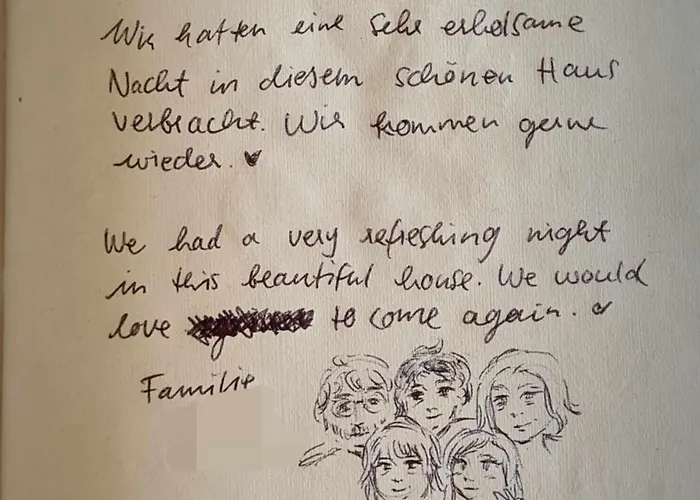 Wir hatten eine sehr erholsame
Nacht in diesem schönen Haus
verbracht. Wir kommen gerne
wieder. ♥
We had a very refreshing night
in this beautiful house. We would
love to come again. ♡
Familie